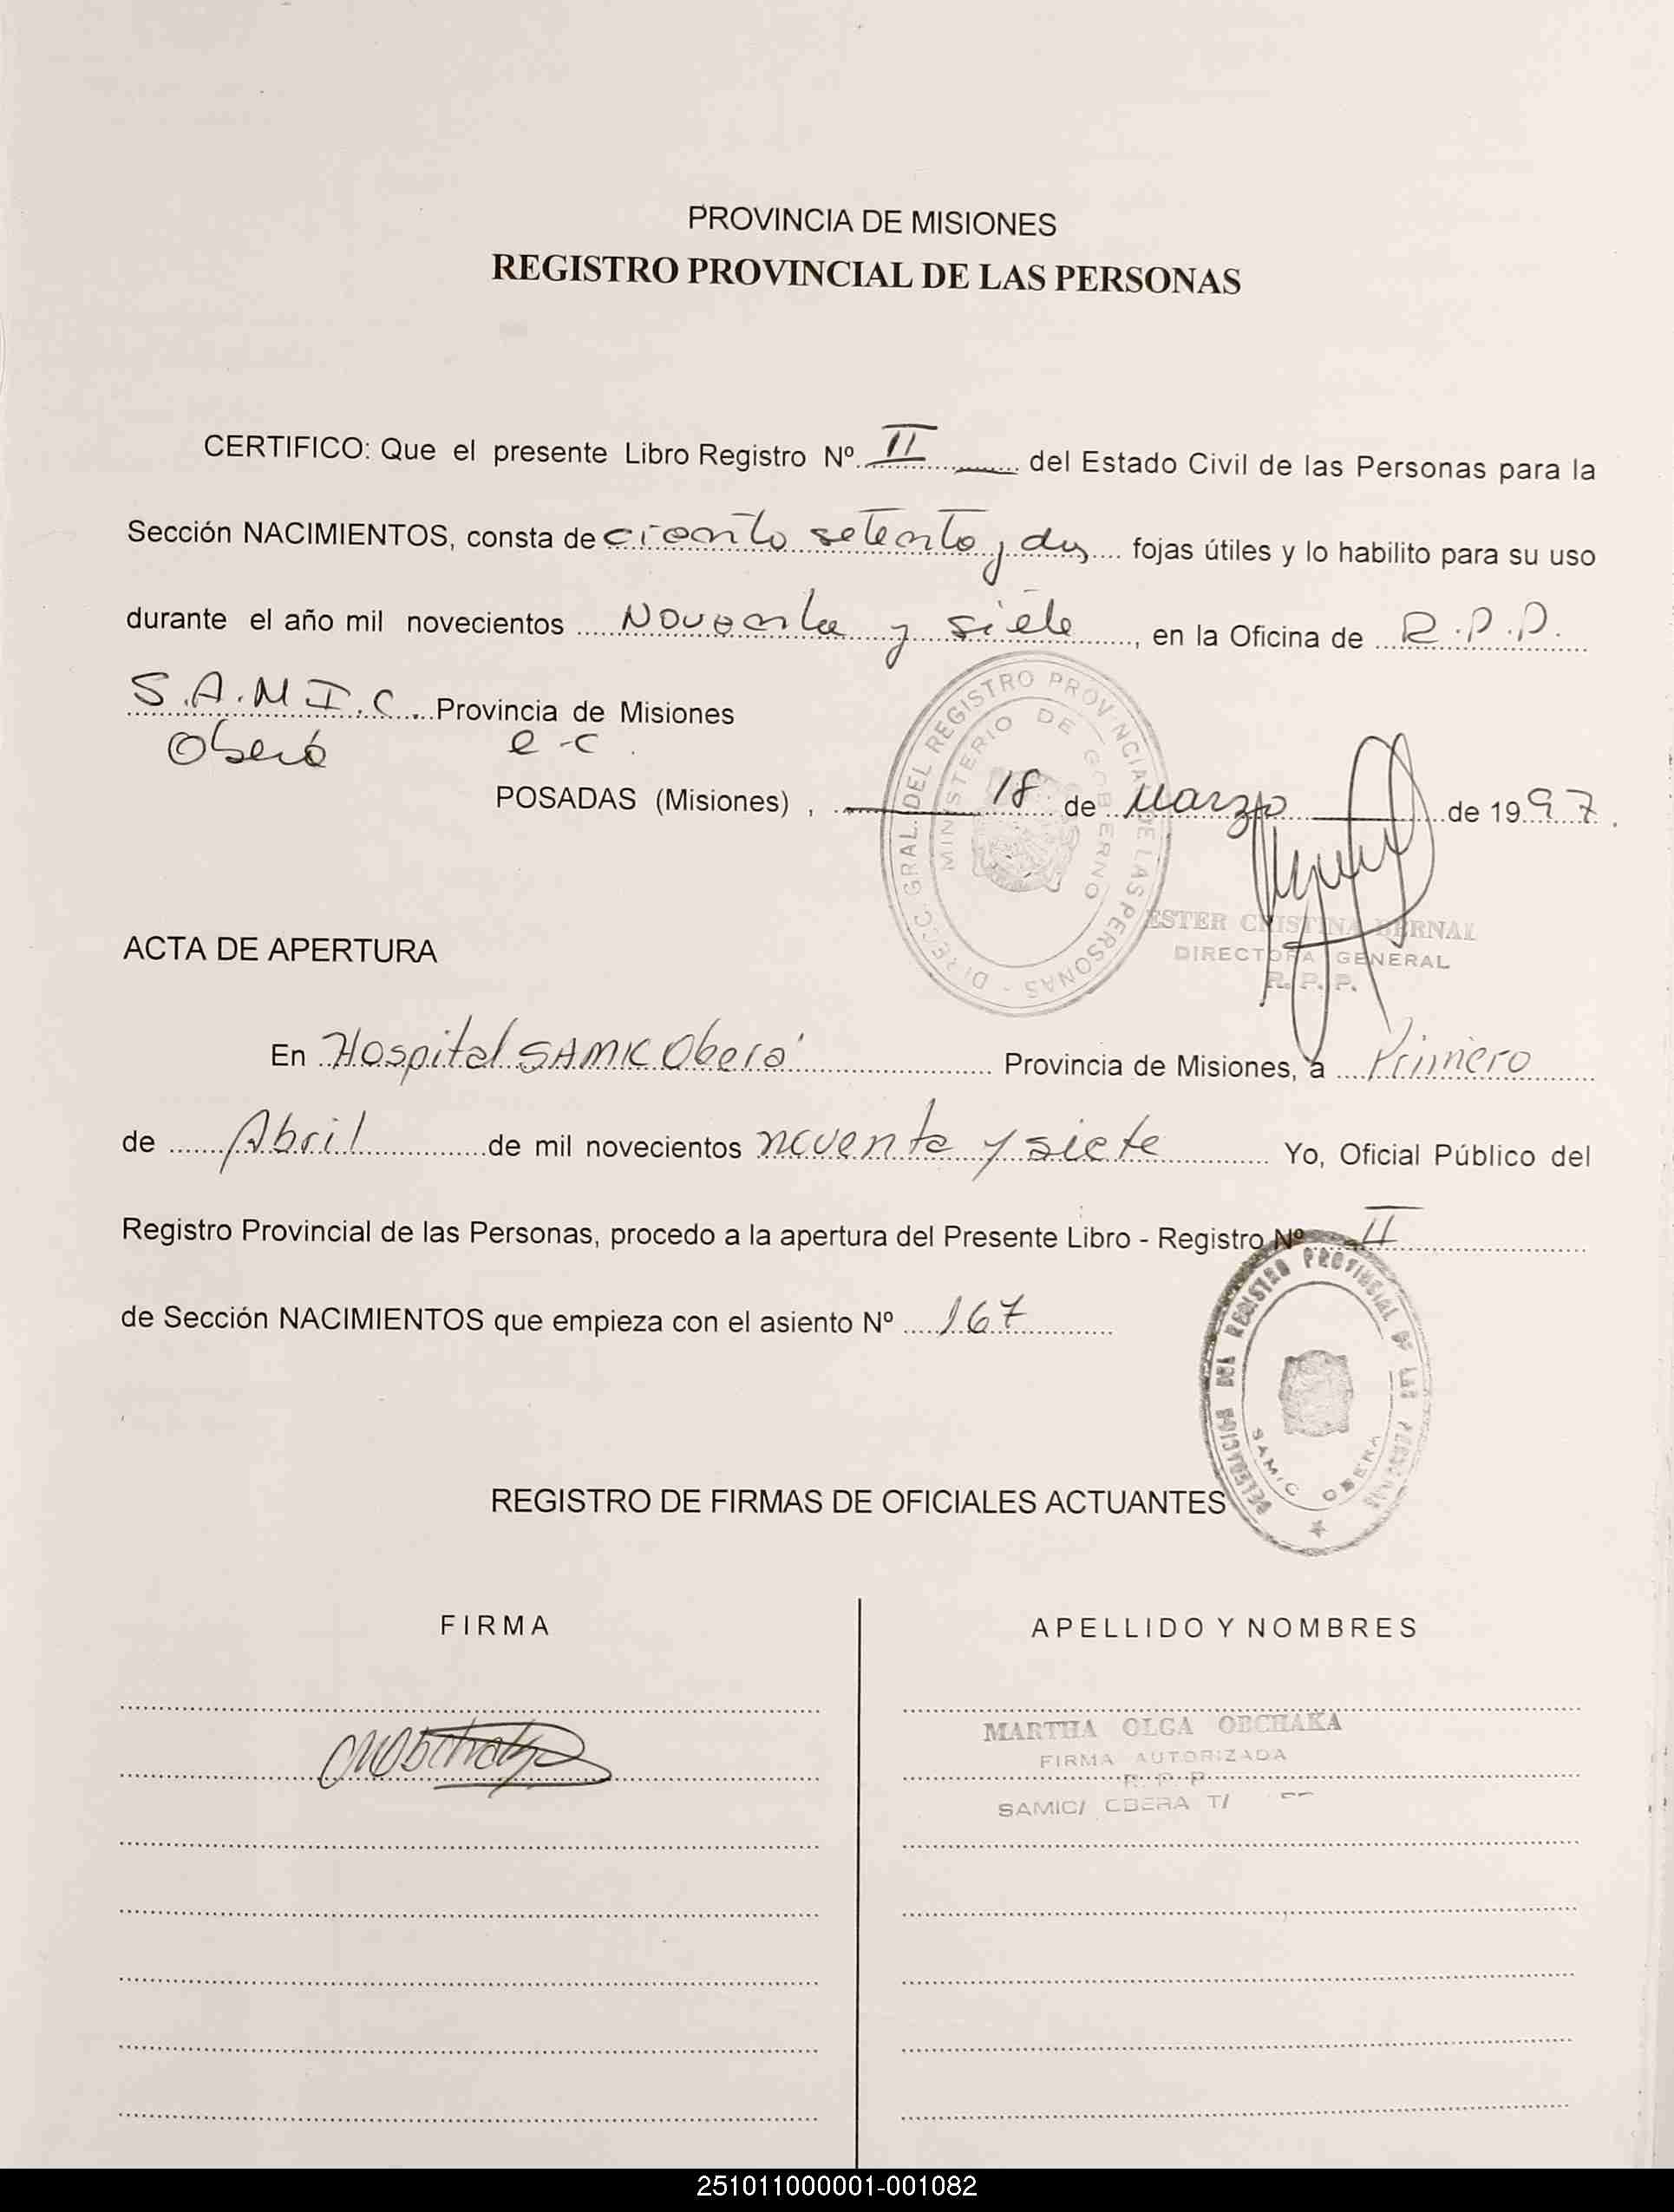 PROVINCIA DE MISIONES
REGISTRO PROVINCIAL DE LAS PERSONAS
CERTIFICO: Que el presente Libro Registro Nº II del Estado Civil de las Personas para la
Sección NACIMIENTOS, consta de ciento setenta y dos fojas útiles y lo habilito para su uso
durante el año mil novecientos Noventa y siete, en la Oficina de R.P.P.
S.A.M.I.C. Provincia de Misiones
Oberá e-c.
POSADAS (Misiones), 18 de Marzo de 1997.
DIRECC. GRAL. DEL REGISTRO PROVINCIAL DE LAS PERSONAS -
MINISTERIO DE GOBIERNO
ESTER CRISTINA BERNAL
DIRECTORA GENERAL
R. P. P.
ACTA DE APERTURA
En Hospital SAMIC Oberá Provincia de Misiones, a Primero
de Abril de mil novecientos noventa y siete Yo, Oficial Público del
Registro Provincial de las Personas, procedo a la apertura del Presente Libro - Registro Nº II
de Sección NACIMIENTOS que empieza con el asiento Nº 167
DELEGACION DEL REGISTRO PROVINCIAL DE LAS PERSONAS
SAMIC OBERA
REGISTRO DE FIRMAS DE OFICIALES ACTUANTES
FIRMA APELLIDO Y NOMBRES
MARTHA OLGA OBCHAKA
FIRMA AUTORIZADA
R. P. P
SAMIC/ OBERA T/
251011000001-001082